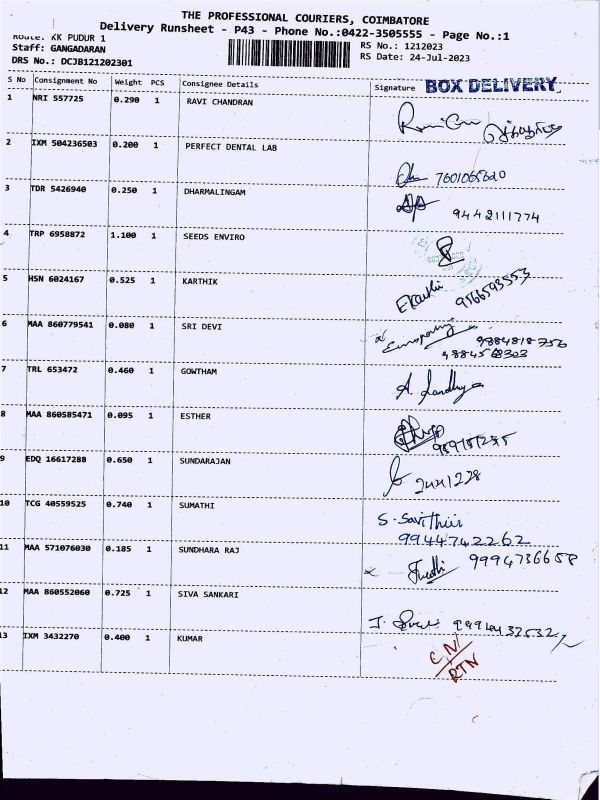 THE PROFESSIONAL COURIERS, COIMBATORE
Delivery Runsheet - P43 - Phone No.:0422-3505555 - Page No.:1
Route: KK PUDUR 1
RS No.: 1212023
Staff: GANGADARAN
RS Date: 24-Jul-2023
DRS No.: DCJB121202301
S No Consignment No Weight PCS Consignee Details Signature BOX DELIVERY
1 NRI 557725 0.290 1 RAVI CHANDRAN
2 IXM 504236503 0.200 1 PERFECT DENTAL LAB
3 TDR 5426940 0.250 1 DHARMALINGAM 9442111774
4 TRP 6958872 1.100 1 SEEDS ENVIRO
5 HSN 6024167 0.525 1 KARTHIK 9566593553
6 MAA 860779541 0.080 1 SRI DEVI
7 TRL 653472 0.460 1 GOWTHAM
8 MAA 860585471 0.095 1 ESTHER
9 EDQ 16617288 0.650 1 SUNDARAJAN
10 TCG 40559525 0.740 1 SUMATHI S. Savithiri
9944742262
11 MAA 571076030 0.185 1 SUNDHARA RAJ 9994736658
12 MAA 860552060 0.725 1 SIVA SANKARI
13 IXM 3432270 0.400 1 KUMAR
RTN